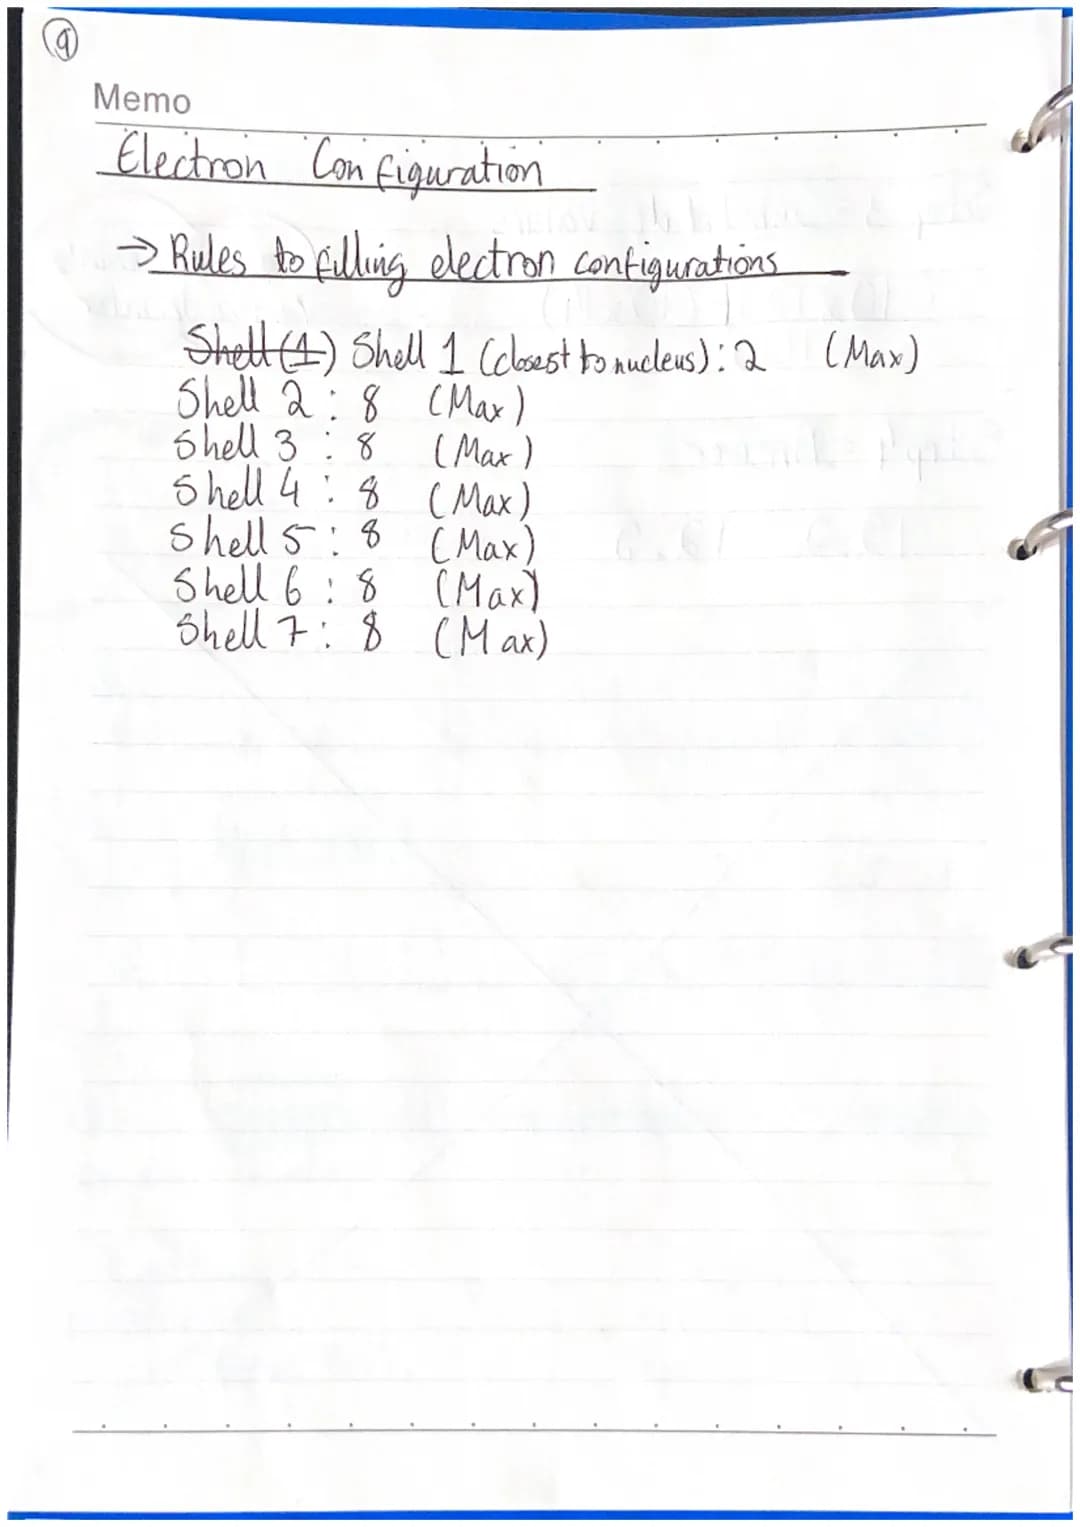 9
Memo
Electron Configuration
→ Rules to filling electron configurations
Shell (1) Shell 1 (closest to nucleus): 2 (Max)
Shell 2 : 8 (Max)
Shell 3 : 8 (Max)
Shell 4 : 8 (Max)
Shell 5 : 8 (Max)
Shell 6 : 8 (Max)
Shell 7 : 8 (Max)